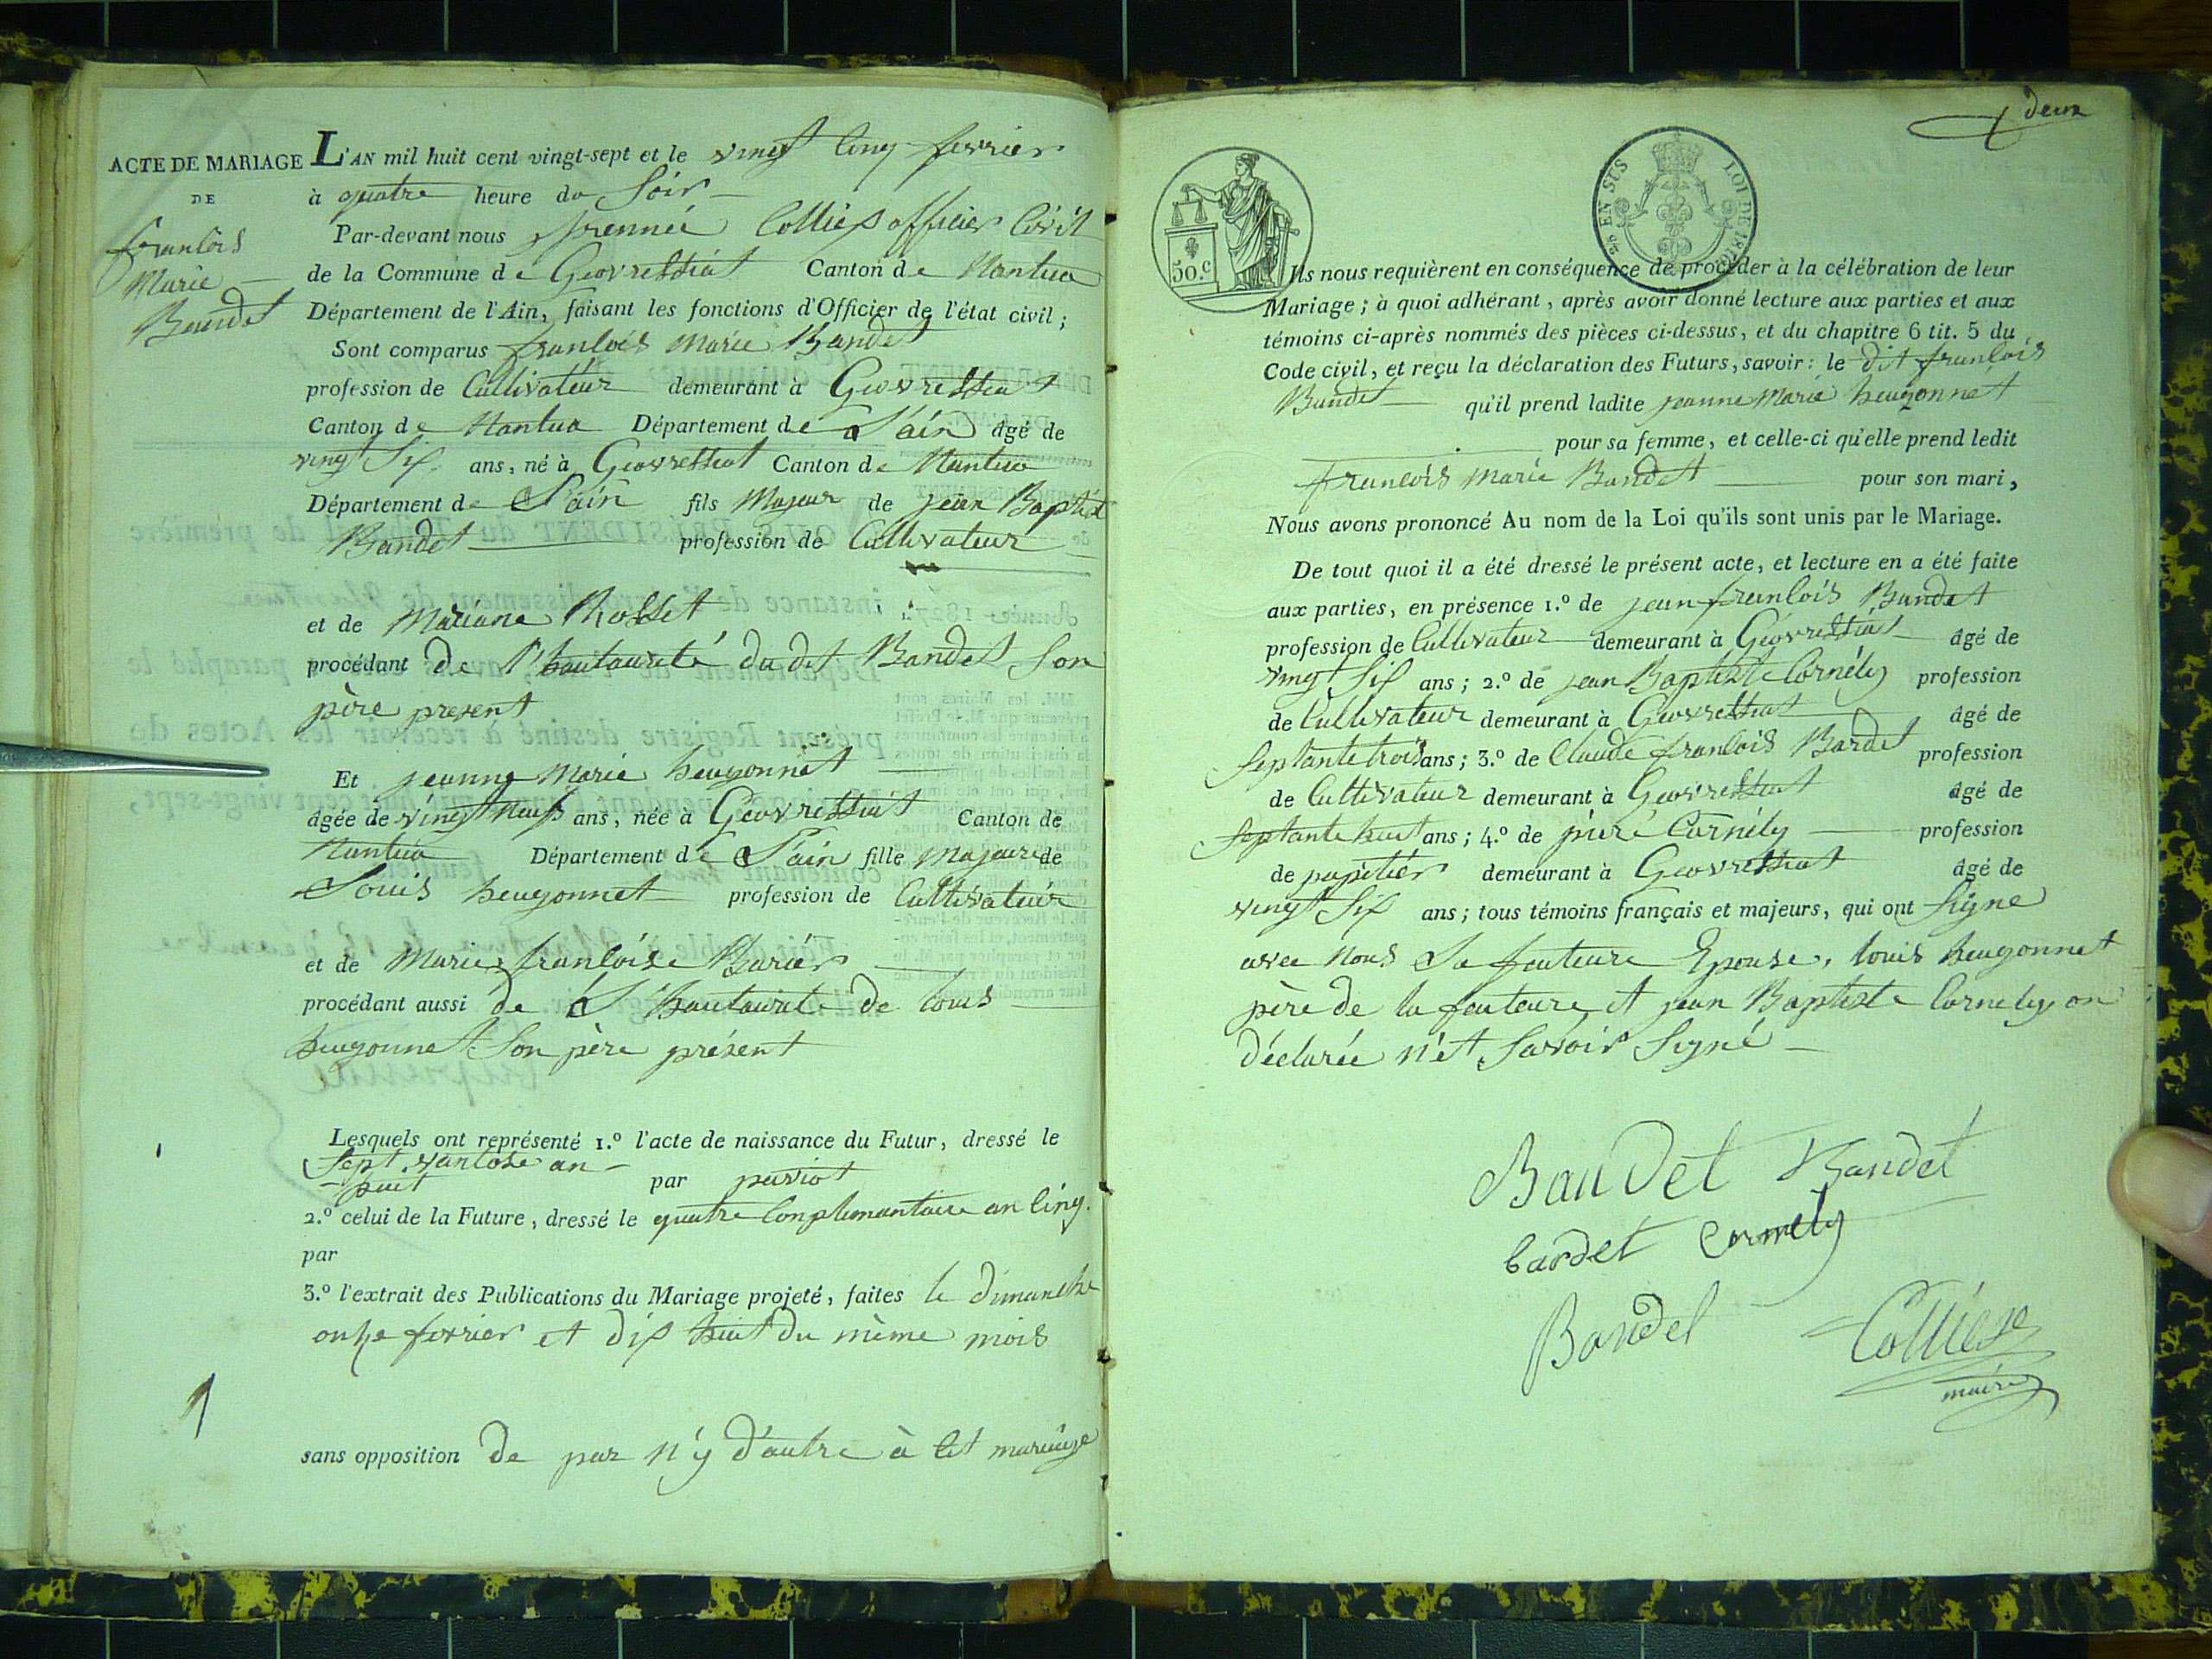 ACTE DE MARIAGE
DE
francois
Marie
Baudet
L'AN mil huit cent vingt-sept et le vingt cinq fevrier
à quatre heure du soir
Par-devant nous Collies officier civil
de la Commune de Geovressiat Canton de Nantua
Département de l'Ain, faisant les fonctions d'Officier de l'état civil ;
Sont comparus francois Marie Baudet
profession de Cultivateur demeurant à Geovressiat
Canton de Nantua Département de L'ain âgé de
vingt six ans, né à Geovressiat Canton de Nantua
Département de L'ain fils Majeur de jean Baptist
Baudet profession de Cultivateur
et de Mariane Rosset
procédant de l'hautaurité du dit Baudet son
père present
Et jeanne Marie heugonnet
âgée de vingt neuf ans, née à Geovressiat Canton de
Nantua Département de L'ain fille majeure de
Louis heugonnet profession de Cultivateur
et de Marie francoise
procédant aussi de L'hautaurité de louis
heugonnet Son père présent
Lesquels ont représenté 1.º l'acte de naissance du Futur, dressé le
sept vantose an
huit par paviot
2.º celui de la Future, dressé le quatre Conplemantaire an cinq.
par
3.º l'extrait des Publications du Mariage projeté, faites le dimanche
onze fevrier et dix huit du même mois
sans opposition de par n'y d'autre à cet mariage
deux
50.c
EN SUS
LOI DE
Ils nous requièrent en conséquence de procéder à la célébration de leur
Mariage ; à quoi adhérant, après avoir donné lecture aux parties et aux
témoins ci-après nommés des pièces ci-dessus, et du chapitre 6 tit. 5 du
Code civil, et reçu la déclaration des Futurs, savoir : le dit françois
Baudet qu'il prend ladite jeanne Marie heugonnet
pour sa femme, et celle-ci qu'elle prend ledit
francois Marie Baudet pour son mari,
Nous avons prononcé Au nom de la Loi qu'ils sont unis par le Mariage.
De tout quoi il a été dressé le présent acte, et lecture en a été faite
aux parties, en présence 1.º de jean francois Baudet
profession de Cultivateur demeurant à Géovressiat âgé de
vingt six ans ; 2.º de jean Baptiste Cornély profession
de Cultivateur demeurant à Geovressiat âgé de
septante trois ans ; 3.º de Claude francois Bardet profession
de Cultivateur demeurant à Geovressiat âgé de
septante huit ans ; 4.º de Cornély profession
de papetier demeurant à Geovressiat âgé de
vingt six ans ; tous témoins français et majeurs, qui ont signe
avec nous La fauteure Epouse, louis heugonnet
père de la fauteure et jean Baptiste Cornely on
déclarée n'et savoir signé
Baudet Baudet
bardet Cornely
Baudet Colliese
maire